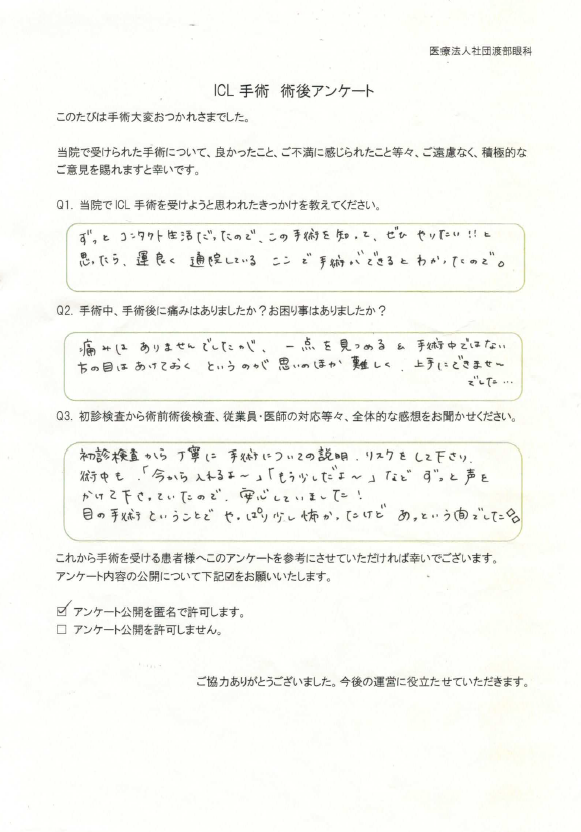 医療法人社団渡部眼科
ICL 手術 術後アンケート
このたびは手術大変おつかれさまでした。
当院で受けられた手術について、良かったこと、ご不満に感じられたこと等々、ご遠慮なく、積極的な
ご意見を賜れますと幸いです。
Q1. 当院で ICL 手術を受けようと思われたきっかけを教えてください。
ずっと コンタクト生活だったので、この手術を知って、ぜひ やりたい!!と
思ったら、運良く 通院している ここで 手術ができるとわかったので。
Q2. 手術中、手術後に痛みはありましたか?お困り事はありましたか?
痛みは ありませんでしたが、一点を見つめる & 手術中ではない
方の目はあけておく というのが 思いのほか 難しく、上手にできませ〜
でした…
Q3. 初診検査から術前術後検査、従業員・医師の対応等々、全体的な感想をお聞かせください。
初診検査から丁寧に 手術についての説明、リスクをして下さり、
術中も、「今から入れるよ〜」「もう少しだよ〜」など ずっと声を
かけて下さっていたので、安心していました!
目の手術ということで やっぱり少し怖かったけど あっという間でした
これから手術を受ける患者様へこのアンケートを参考にさせていただければ幸いでございます。
アンケート内容の公開について下記☑をお願いいたします。
☑ アンケート公開を匿名で許可します。
□ アンケート公開を許可しません。
ご協力ありがとうございました。今後の運営に役立たせていただきます。